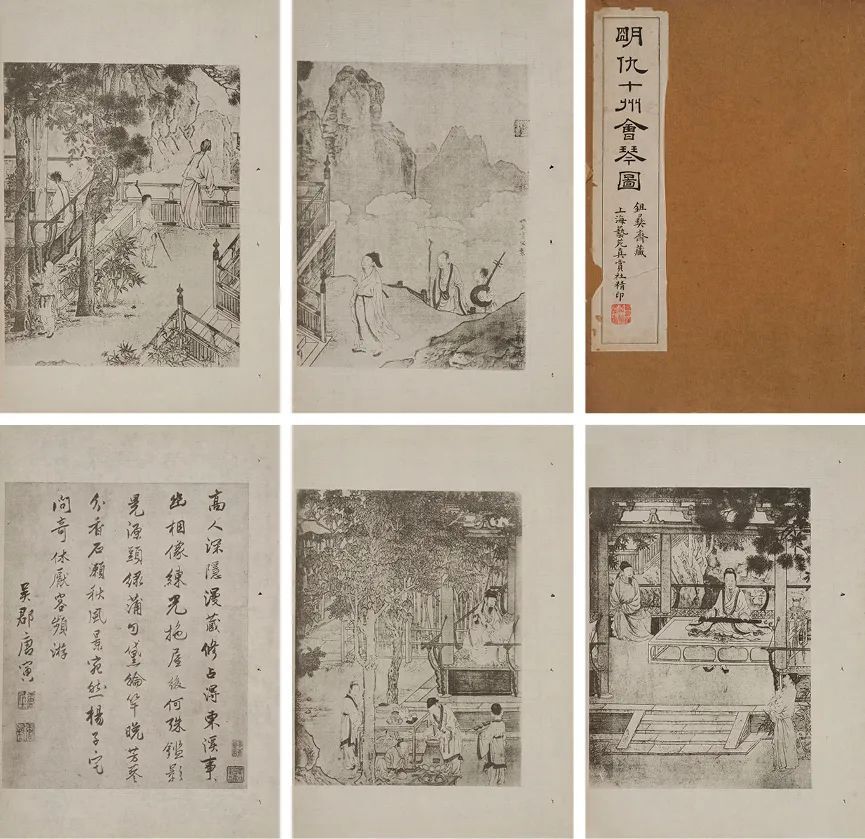 明仇十州會琴圖
彝齋藏
上海藝苑真賞社精印
高人深隱漫藏修占得東溪事
幽相像練光拖屋後何殊鑑影
晃頭綠蒲勻黛綸竿晚芳
分香石瀨秋風景宛然楊子宅
問奇休厭客頻游
吳郡唐寅